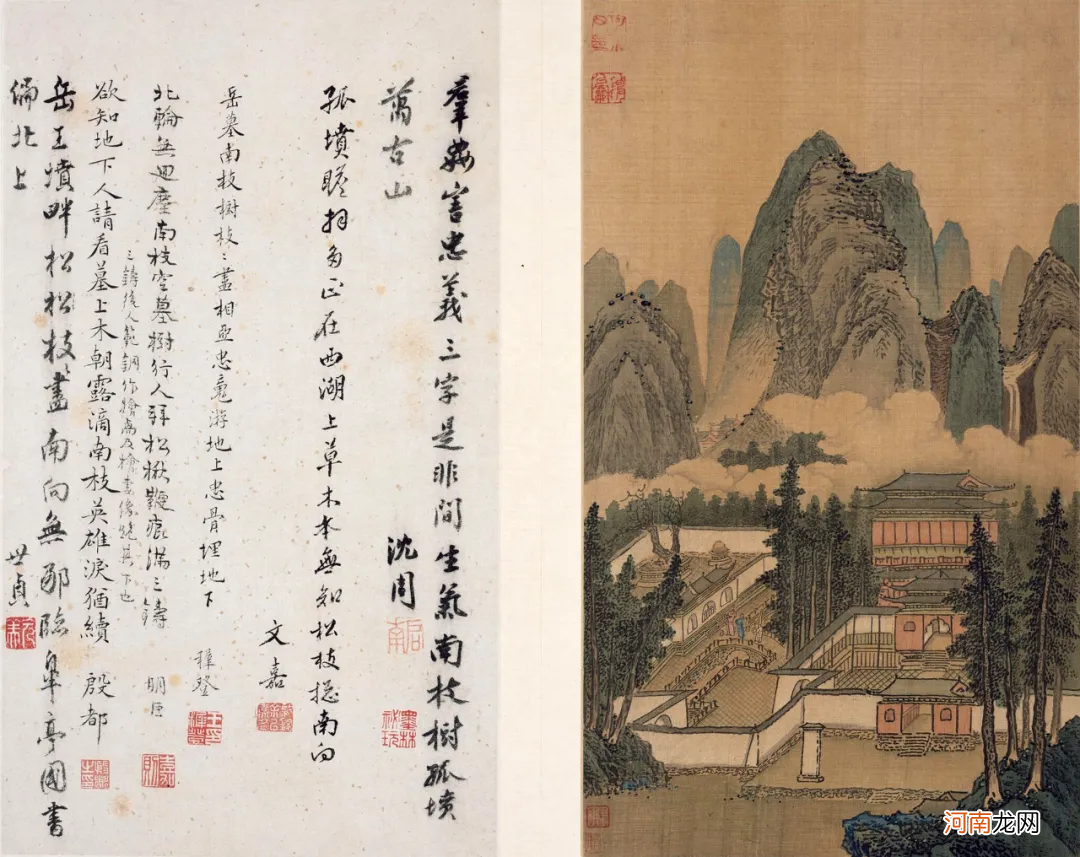 羣姦害忠義三字是非間生氣南枝樹孤墳
萬古山
沈周
啓南
墨林秘玩
孤墳瞻拜多正在西湖上草木本無知松枝摠南向
文嘉
岳墓南枝樹枝〻盡相亞忠魂游地上忠骨埋地下
穉登
北轅無迴塵南枝空墓樹行人拜松楸鞭痕滿三鑄
明臣
三鑄後人範銅作檜卨及檜妻像繞其下也
欲知地下人請看墓上木朝露滴南枝英雄淚猶續
殷都
岳王墳畔松松枝盡南向無那臨皋亭圖書
偏北上
世貞
河南龙网